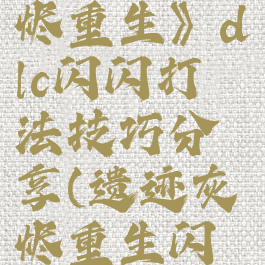 烬重生》d
lc闪闪打
法技巧分
享(遗迹灰
烬重生闪